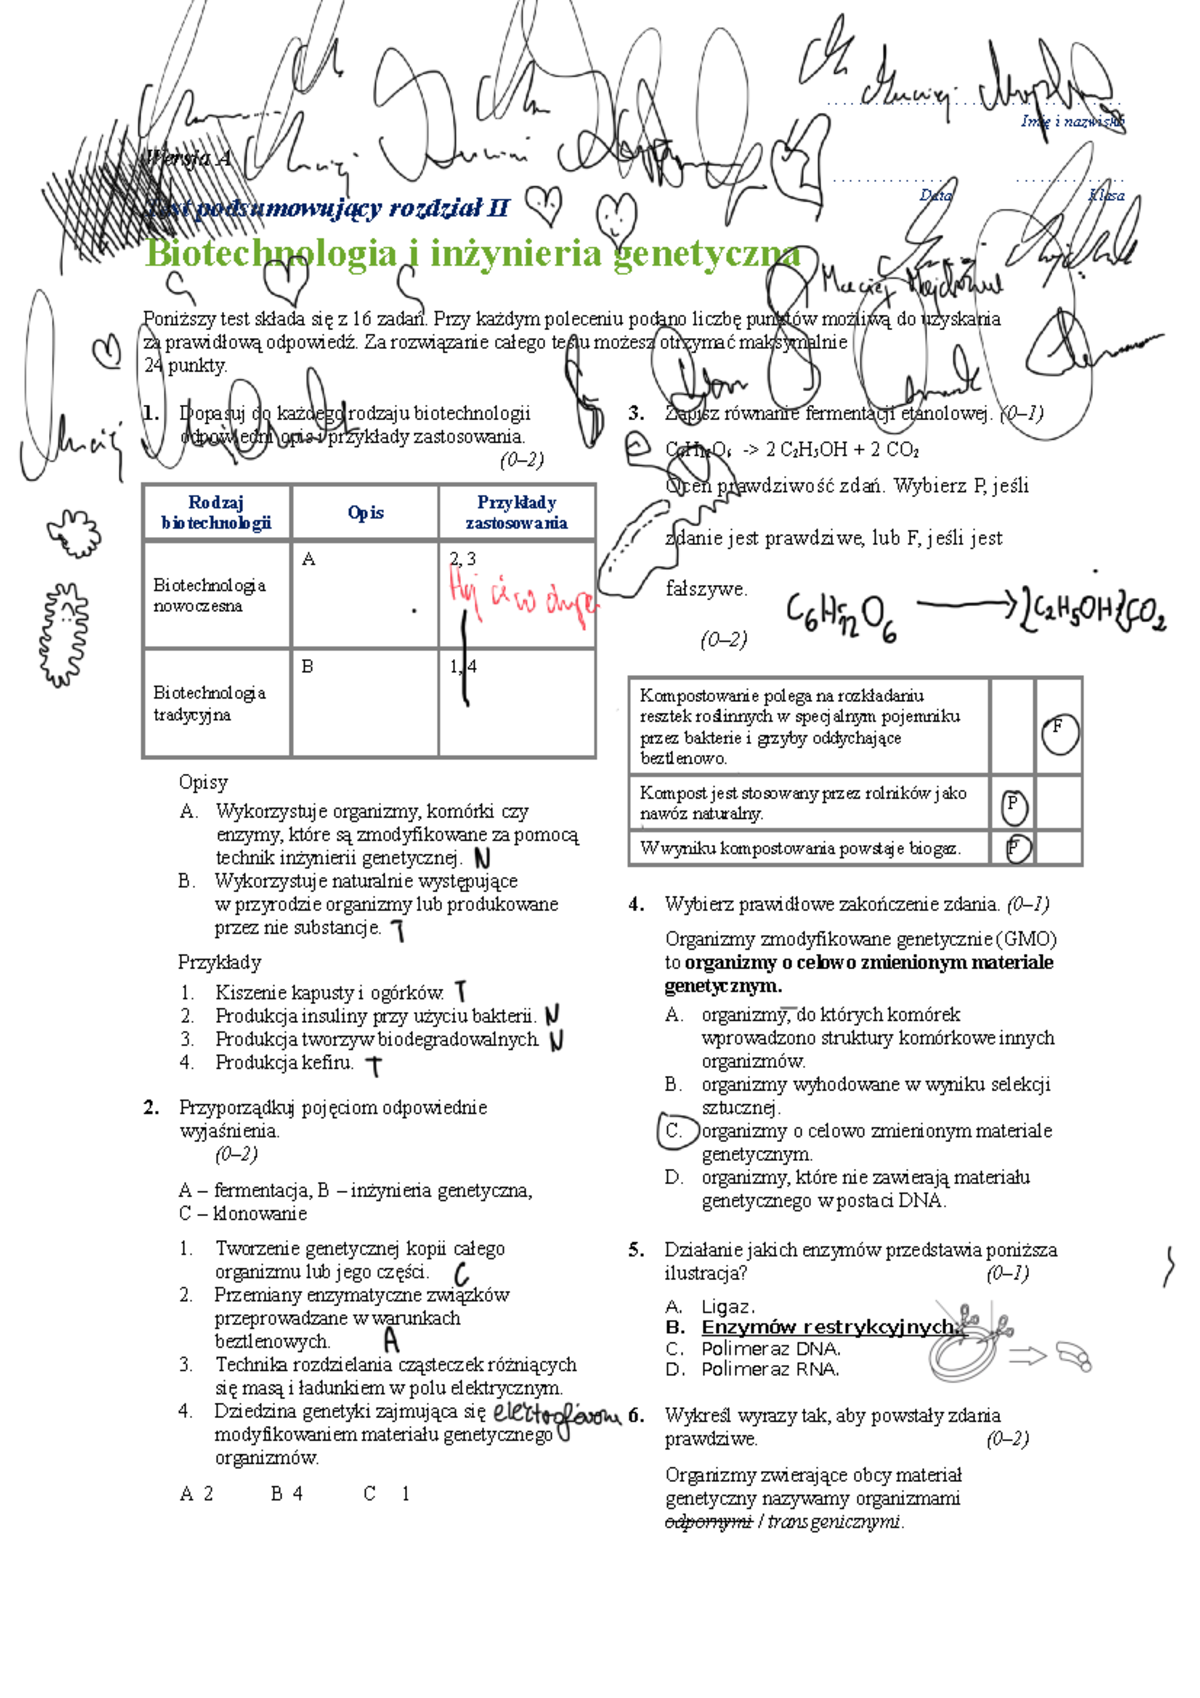 Maciej
Imię i nazwisko
Wersja A
Maciej
Data
Klasa
Test podsumowujący rozdział II
Biotechnologia i inżynieria genetyczna
Maciej
Poniższy test składa się z 16 zadań. Przy każdym poleceniu podano liczbę punktów możliwą do uzyskania
za prawidłową odpowiedź. Za rozwiązanie całego testu możesz otrzymać maksymalnie
24 punkty.
Maciej
1. Dopasuj do każdego rodzaju biotechnologii
odpowiedni opis i przykłady zastosowania.
(0–2)
Rodzaj
biotechnologii
Opis
Przykłady
zastosowania
Biotechnologia
nowoczesna
A
2, 3
Biotechnologia
tradycyjna
B
1, 4
Opisy
A. Wykorzystuje organizmy, komórki czy
enzymy, które są zmodyfikowane za pomocą
technik inżynierii genetycznej. N
B. Wykorzystuje naturalnie występujące
w przyrodzie organizmy lub produkowane
przez nie substancje. T
Przykłady
1. Kiszenie kapusty i ogórków. T
2. Produkcja insuliny przy użyciu bakterii. N
3. Produkcja tworzyw biodegradowalnych. N
4. Produkcja kefiru. T
2. Przyporządkuj pojęciom odpowiednie
wyjaśnienia.
(0–2)
A – fermentacja, B – inżynieria genetyczna,
C – klonowanie
1. Tworzenie genetycznej kopii całego
organizmu lub jego części. C
2. Przemiany enzymatyczne związków
przeprowadzane w warunkach
beztlenowych. A
3. Technika rozdzielania cząsteczek różniących
się masą i ładunkiem w polu elektrycznym.
4. Dziedzina genetyki zajmująca się
modyfikowaniem materiału genetycznego
organizmów.
A 2 B 4 C 1
3. Zapisz równanie fermentacji etanolowej. (0–1)
C₆H₁₂O₆ -> 2 C₂H₅OH + 2 CO₂
Oceń prawdziwość zdań. Wybierz P, jeśli
zdanie jest prawdziwe, lub F, jeśli jest
fałszywe.
C₆H₁₂O₆ → 2C₂H₅OH 2CO₂
(0–2)
Kompostowanie polega na rozkładaniu
resztek roślinnych w specjalnym pojemniku
przez bakterie i grzyby oddychające
beztlenowo.
F
Kompost jest stosowany przez rolników jako
nawóz naturalny.
P
W wyniku kompostowania powstaje biogaz.
P
4. Wybierz prawidłowe zakończenie zdania. (0–1)
Organizmy zmodyfikowane genetycznie (GMO)
to organizmy o celowo zmienionym materiale
genetycznym.
A. organizmy, do których komórek
wprowadzono struktury komórkowe innych
organizmów.
B. organizmy wyhodowane w wyniku selekcji
sztucznej.
C. organizmy o celowo zmienionym materiale
genetycznym.
D. organizmy, które nie zawierają materiału
genetycznego w postaci DNA.
5. Działanie jakich enzymów przedstawia poniższa
ilustracja? (0–1)
A. Ligaz.
B. Enzymów restrykcyjnych.
C. Polimeraz DNA.
D. Polimeraz RNA.
6. Wykreśl wyrazy tak, aby powstały zdania
prawdziwe. (0–2)
Organizmy zwierające obcy materiał
genetyczny nazywamy organizmami
odpornymi / transgenicznymi.